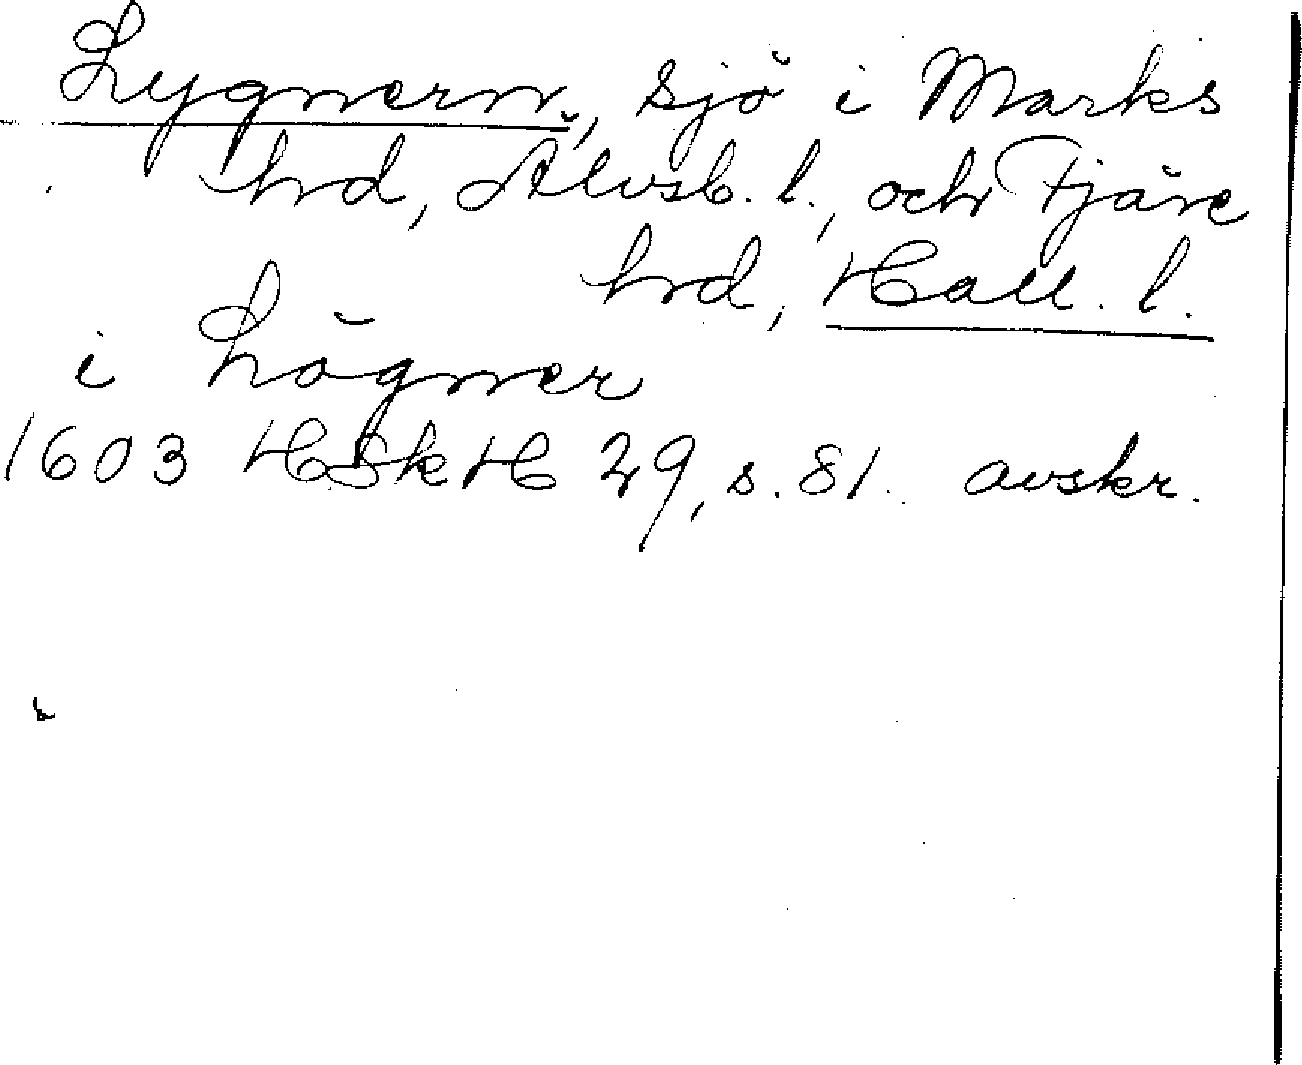 Lygnern, sjö i Marks
hrd, Älvsb. l., och Fjäre
hrd, Hall. l.
i Lögner
1603 HSkH 29, s. 81. avskr.